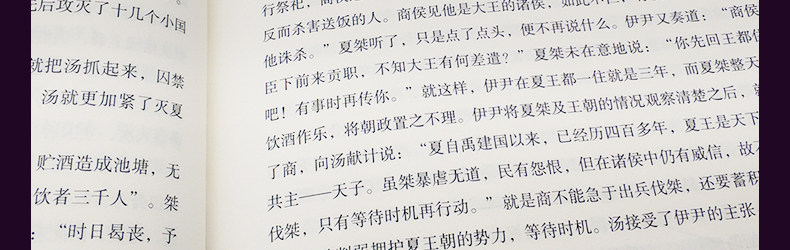 先后攻灭了十几个小国
就把汤抓起来，囚禁
汤就更加紧了灭夏
贮酒造成池塘，无
饮者三千人”。桀
“时日曷丧，予
行祭祀，商
反而杀害送饭的人。商侯见他是大王的诸侯，如此不
他诛杀。”夏桀听了，只是点了点头，便不再说什么。伊尹又奏道：“商侯
臣下前来贡职，不知大王有何差遣？”夏桀未在意地说：“你先回王都住
吧！有事时再传你。”就这样，伊尹在夏王都一住就是三年，而夏桀整天
饮酒作乐，将朝政置之不理。伊尹将夏桀及王朝的情况观察清楚之后，就
了商，向汤献计说：“夏自禹建国以来，已经历四百多年，夏王是天下
共主——天子。虽桀暴虐无道，民有怨恨，但在诸侯中仍有威信，故不
伐桀，只有等待时机再行动。”就是商不能急于出兵伐桀，还要蓄积
削弱拥护夏王朝的势力，等待时机。汤接受了伊尹的主张